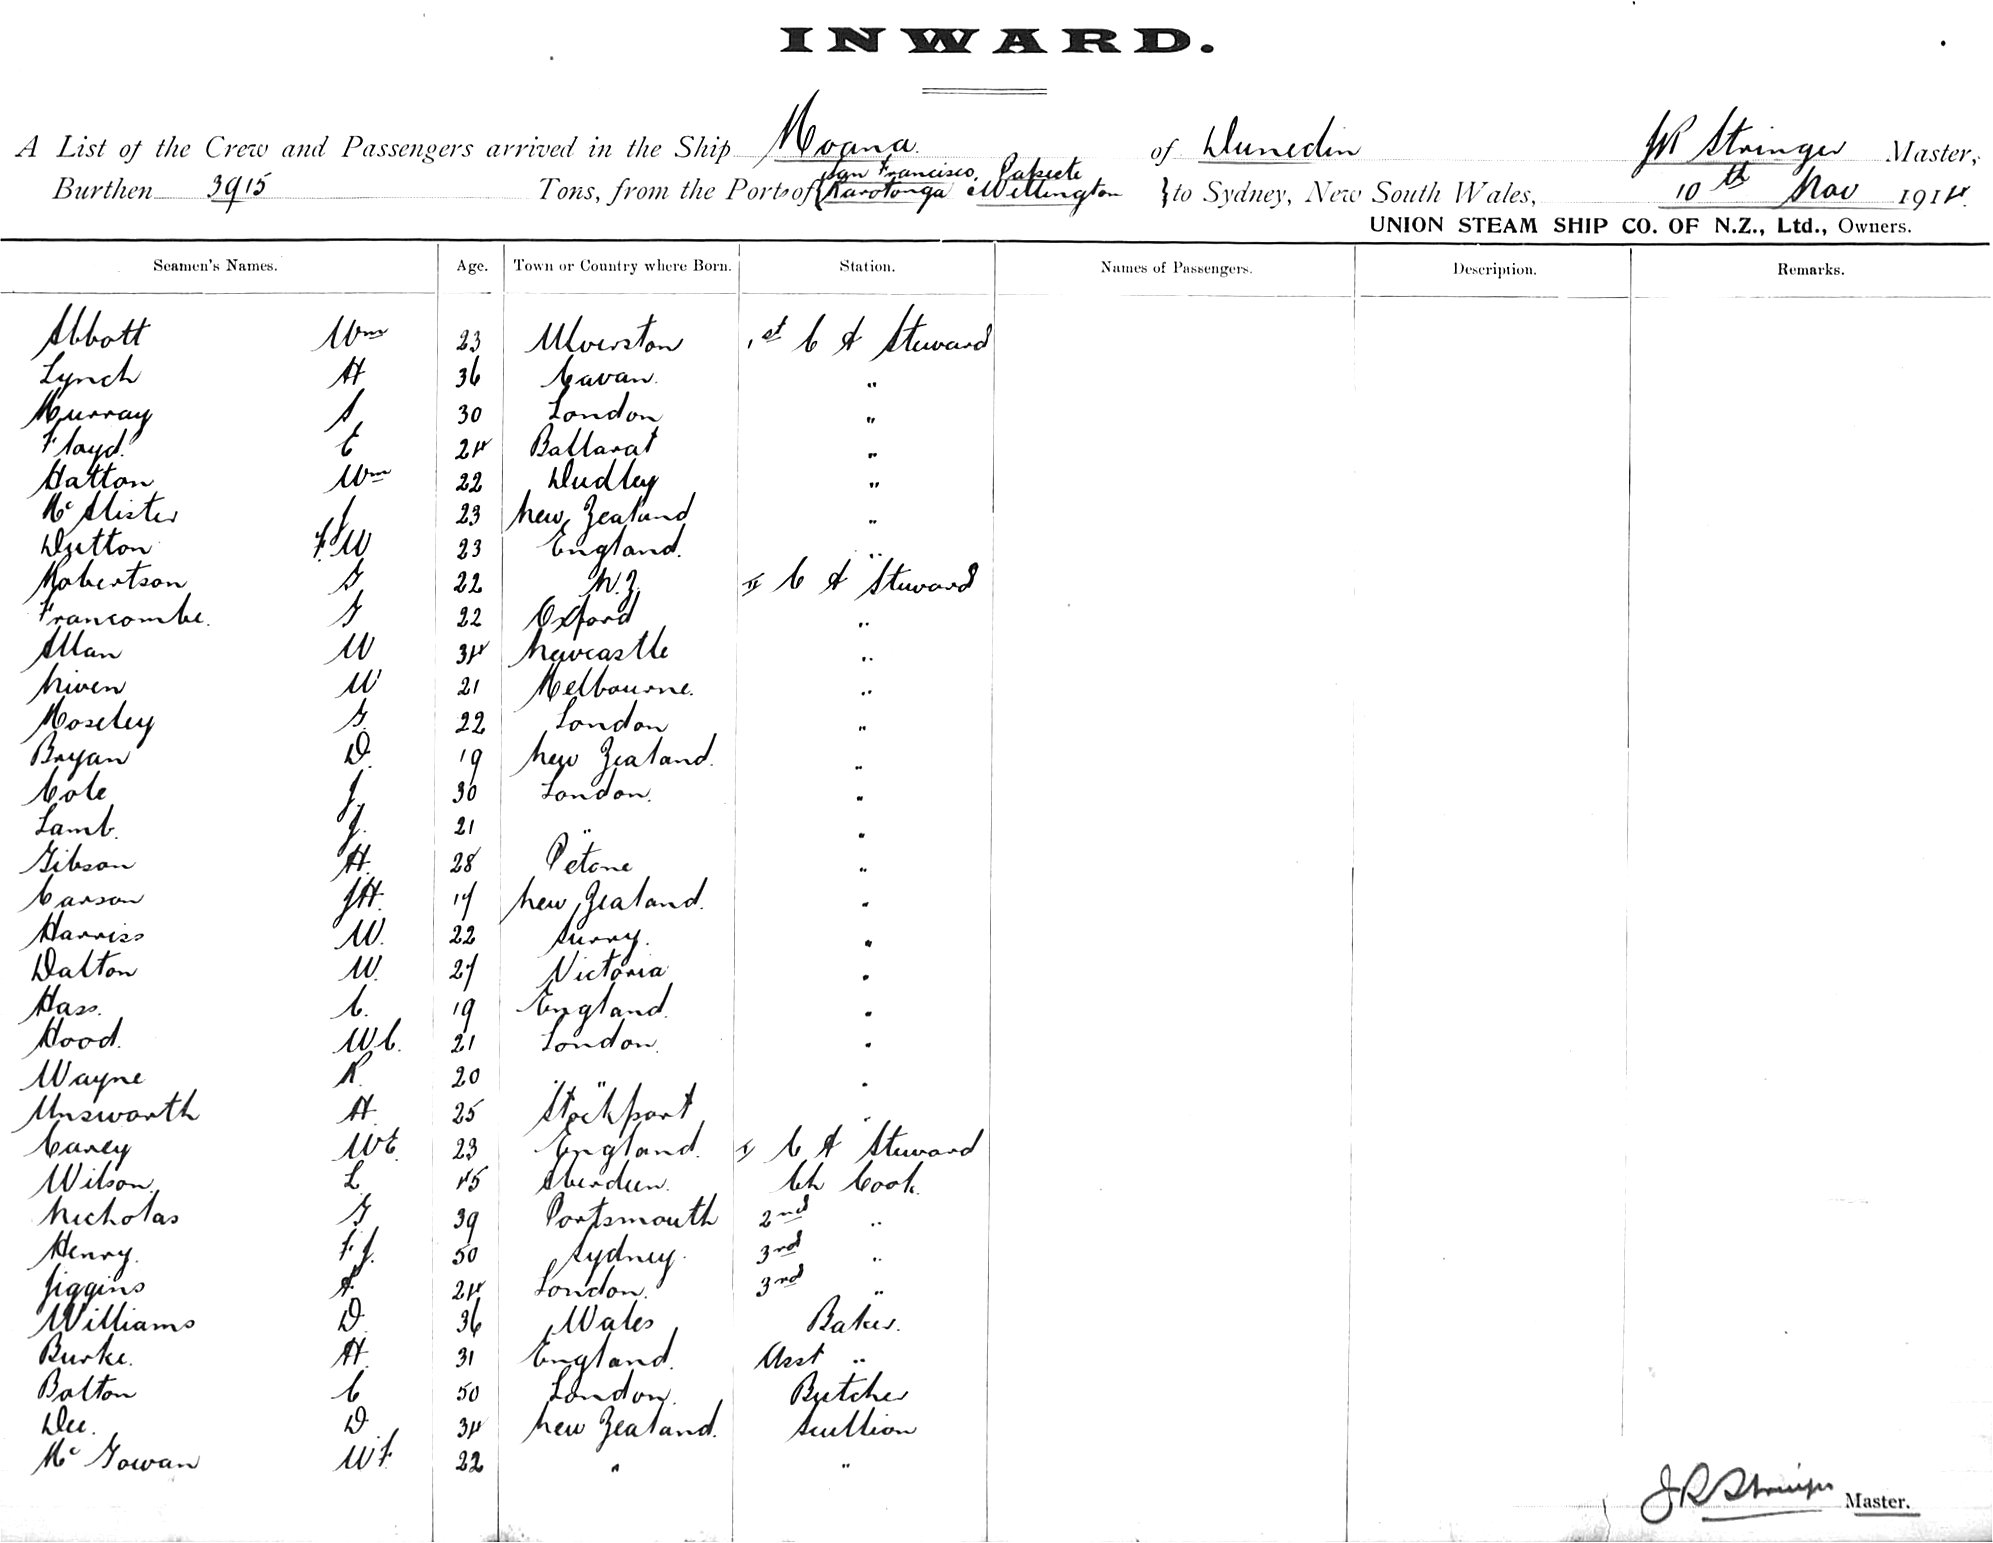 INWARD.
A List of the Crew and Passengers arrived in the Ship Moana. of Dunedin J R Stringer Master,
San Francisco, Papeete
Burthen 3915 Tons, from the Ports of Rarotonga & Wellington to Sydney, New South Wales, 10th Nov 1914.
UNION STEAM SHIP CO. OF N.Z., Ltd., Owners.
Seamen's Names. Age. Town or Country where Born. Station. Names of Passengers. Description. Remarks.
Abbott Wm 23 Ulverston 1st C A Steward
Lynch H 36 Cavan. "
Murray S 30 London "
Floyd. E 24 Ballarat "
Hatton Wm 22 Dudley "
Mc Alister J 23 New Zealand "
Dutton F W 23 England. "
Robertson G 22 N.Z. II C A Steward
Francombe. G 22 Oxford "
Allan W 34 Newcastle "
Niven W 21 Melbourne. "
Moseley G. 22 London "
Bryan D. 19 New Zealand. "
Cole J. 30 London. "
Lamb. J. 21 " "
Gibson H. 28 Petone "
Carson JH. 17 New Zealand. "
Harriss W. 22 Surry. "
Dalton W. 27 Victoria "
Hass. C. 19 England. "
Hood. W C. 21 London. "
Wayne R. 20 " "
Unsworth H. 25 Stockport "
Carey W E. 23 England. II C A Steward
Wilson. L. 45 Aberdeen. Ch Cook.
Nicholas G 39 Portsmouth 2nd "
Henry. F J. 50 Sydney. 3rd "
Jiggins A. 24 London. 3rd "
Williams D. 36 Wales Baker.
Burke. H. 31 England. Asst "
Bolton C 50 London. Butcher
Dee. D 34 New Zealand. Scullion
Mc Gowan W F. 22 " "
J R Stringer Master.